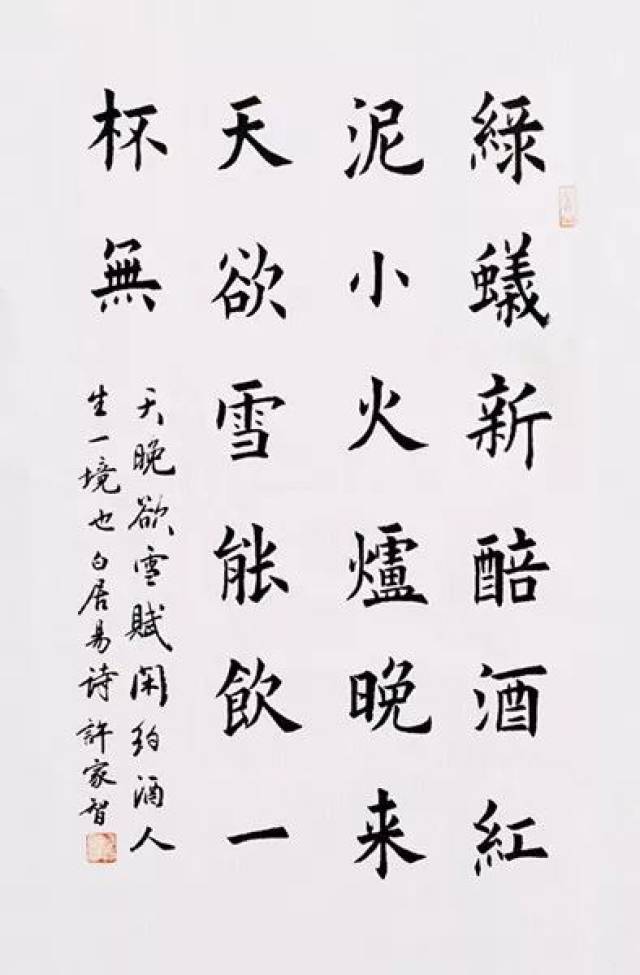 綠蟻新醅酒紅
泥小火爐晚来
天欲雪能飲一
杯無
天晚欲雪賦閑約酒人
生一境也白居易诗許家智